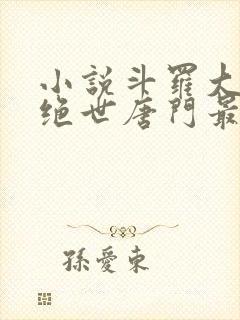 小説斗羅大
绝世唐門最
孫愛東